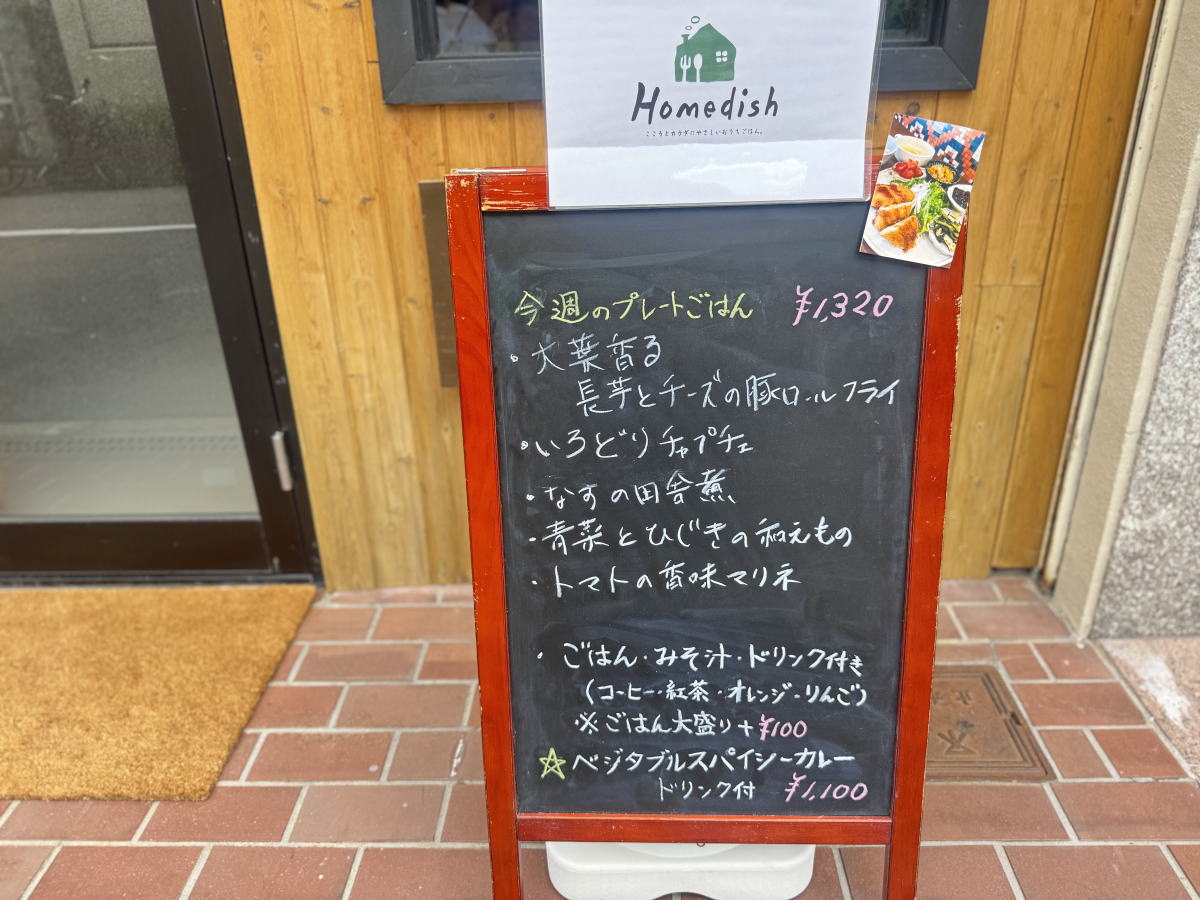 Homedish
こころとカラダにやさしいおうちごはん。
今週のプレートごはん ¥1,320
・大葉香る
長芋とチーズの豚ロールフライ
・いろどりチャプチェ
・なすの田舎煮
・青菜とひじきの和えもの
・トマトの香味マリネ
・ごはん・みそ汁・ドリンク付き
(コーヒー・紅茶・オレンジ・りんご)
※ごはん大盛り+¥100
☆ベジタブルスパイシーカレー
ドリンク付 ¥1,100